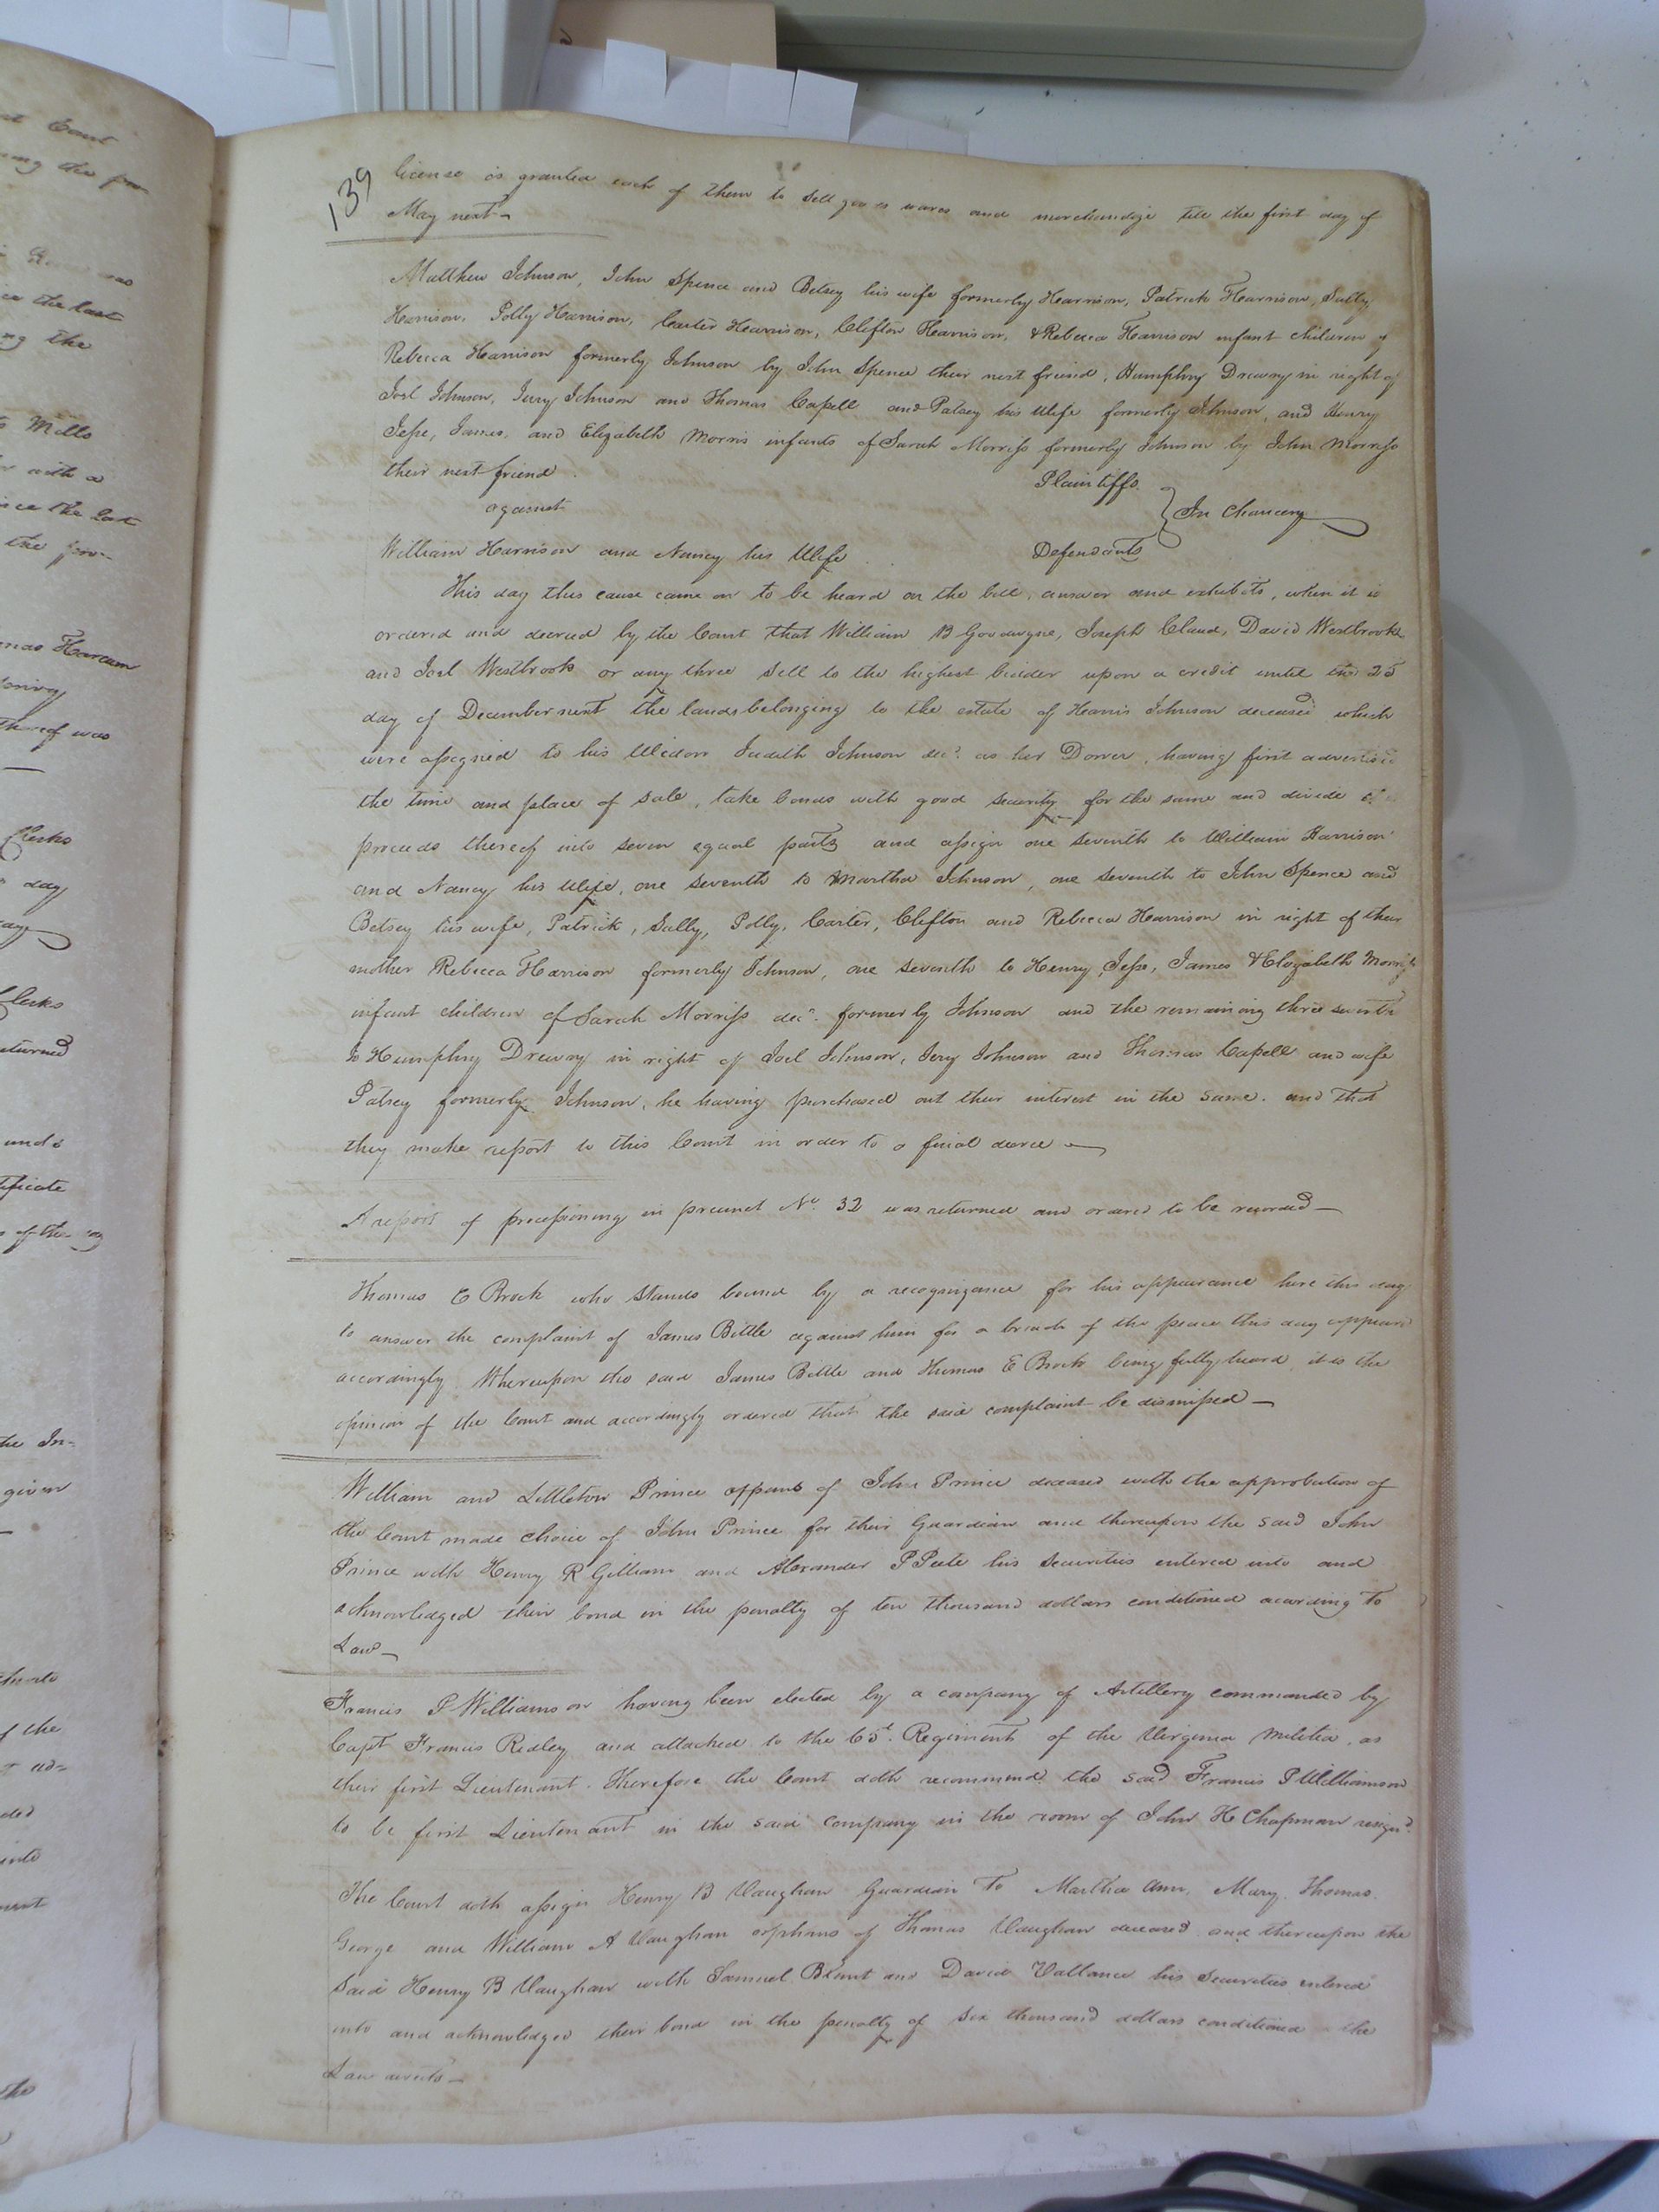 139
license is granted each of them to sell goods wares and merchandize till the first day of
May next
Matthew Johnson, John Spence and Betsey his wife formerly Harrison, Patrick Harrison, Sally
Harrison, Polly Harrison, Carter Harrison, Clifton Harrison, & Rebecca Harrison infant children of
Rebecca Harrison formerly Johnson by John Spence their next friend, Humphry Drewry in right of
Joel Johnson, Jerry Johnson and Thomas Capell and Patsey his Wife formerly Johnson, and Henry
Jesse, James, and Elizabeth Morris infants of Sarah Morriss formerly Johnson by John Morriss
their next friend. Plaintiffs
against } In Chancery
William Harrison and Nancy his Wife Defendants
This day this cause came on to be heard on the bill, answer and exhibits, when it is
ordered and decreed by the Court that William B Goodwyne, Joseph Claud, David Westbrook
and Joel Westbrook or any three sell to the highest bidder upon a credit until the 25
day of December next the lands belonging to the estate of Harris Johnson deceased which
were assigned to his Widow Judith Johnson decd. as her Dower, having first advertised
the time and place of sale, take bonds with good security for the same and divide
proceeds thereof into seven equal parts and assign one seventh to William Harrison
and Nancy his Wife, one seventh to Martha Johnson, one seventh to John Spence and
Betsey his wife, Patrick, Sally, Polly, Carter, Clifton and Rebecca Harrison in right of their
mother Rebecca Harrison formerly Johnson, one seventh to Henry, Jesse, James & Elizabeth Morriss
infant children of Sarah Morriss decd. formerly Johnson and the remaining three sevenths
to Humphry Drewry in right of Joel Johnson, Jerry Johnson and Thomas Capell and wife
Patsey formerly Johnson, he having purchased out their interest in the same. and that
they make report to this Court in order to a final decree
A report of processioning in precinct No. 32 was returned and ordered to be recorded
Thomas E Brock who stands bound by a recognizance for his appearance here this day
to answer the complaint of James Bittle against him for a breach of the peace this day appeared
accordingly. Whereupon the said James Bittle and Thomas E Brock being fully heard, it is the
opinion of the Court and accordingly ordered that the said complaint be dismissed
William and Littleton Prince orphans of John Prince deceased with the approbation of
the Court made choice of John Prince for their Guardian and thereupon the said John
Prince with Henry R Gilliam and Alexander P Peete his Securities entered into and
acknowledged their bond in the penalty of ten thousand dollars conditioned according to
Law
Francis P Williamson having been elected by a company of Artillery commanded by
Capt Francis Ridley and attached to the 65t. Regiment of the Virginia Militia, as
their first Lieutenant. Therefore the Court doth recommend the said Francis P Williamson
to be first Lieutenant in the said company in the room of John H Chapman resignd.
The Court doth assign Henry B Vaughan Guardian to Martha Ann, Mary, Thomas
George and William A Vaughan orphans of Thomas Vaughan deceased and thereupon the
said Henry B Vaughan with Samuel Blunt and David Vallance his Securities entered
into and acknowledged their bond in the penalty of six thousand dollars conditioned the
Law directs